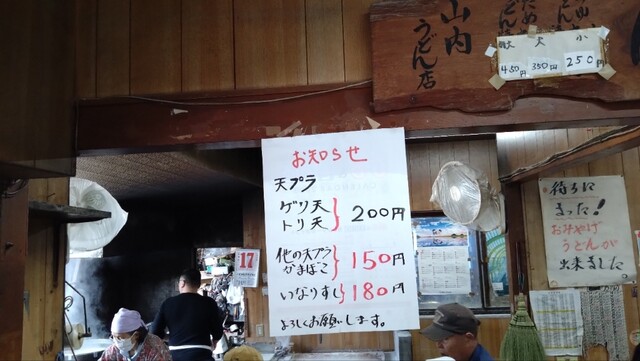 山内
うどん店
特大 大 小
450円 350円 250円
お知らせ
天プラ
ゲソ天
トリ天
200円
他の天プラ
かまぼこ
150円
いなりすし 180円
よろしくお願いします。
17
待ちに
まった!
おみやげ
うどんが
出来ました。